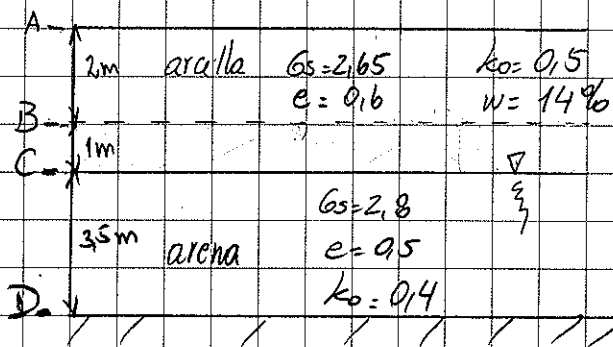 A
2m arcilla Gs=2,65 ko=0,5
e=0,6 w=14%
B
1m
C
Gs=2,8
3,5m arena e=0,5
ko=0,4
D